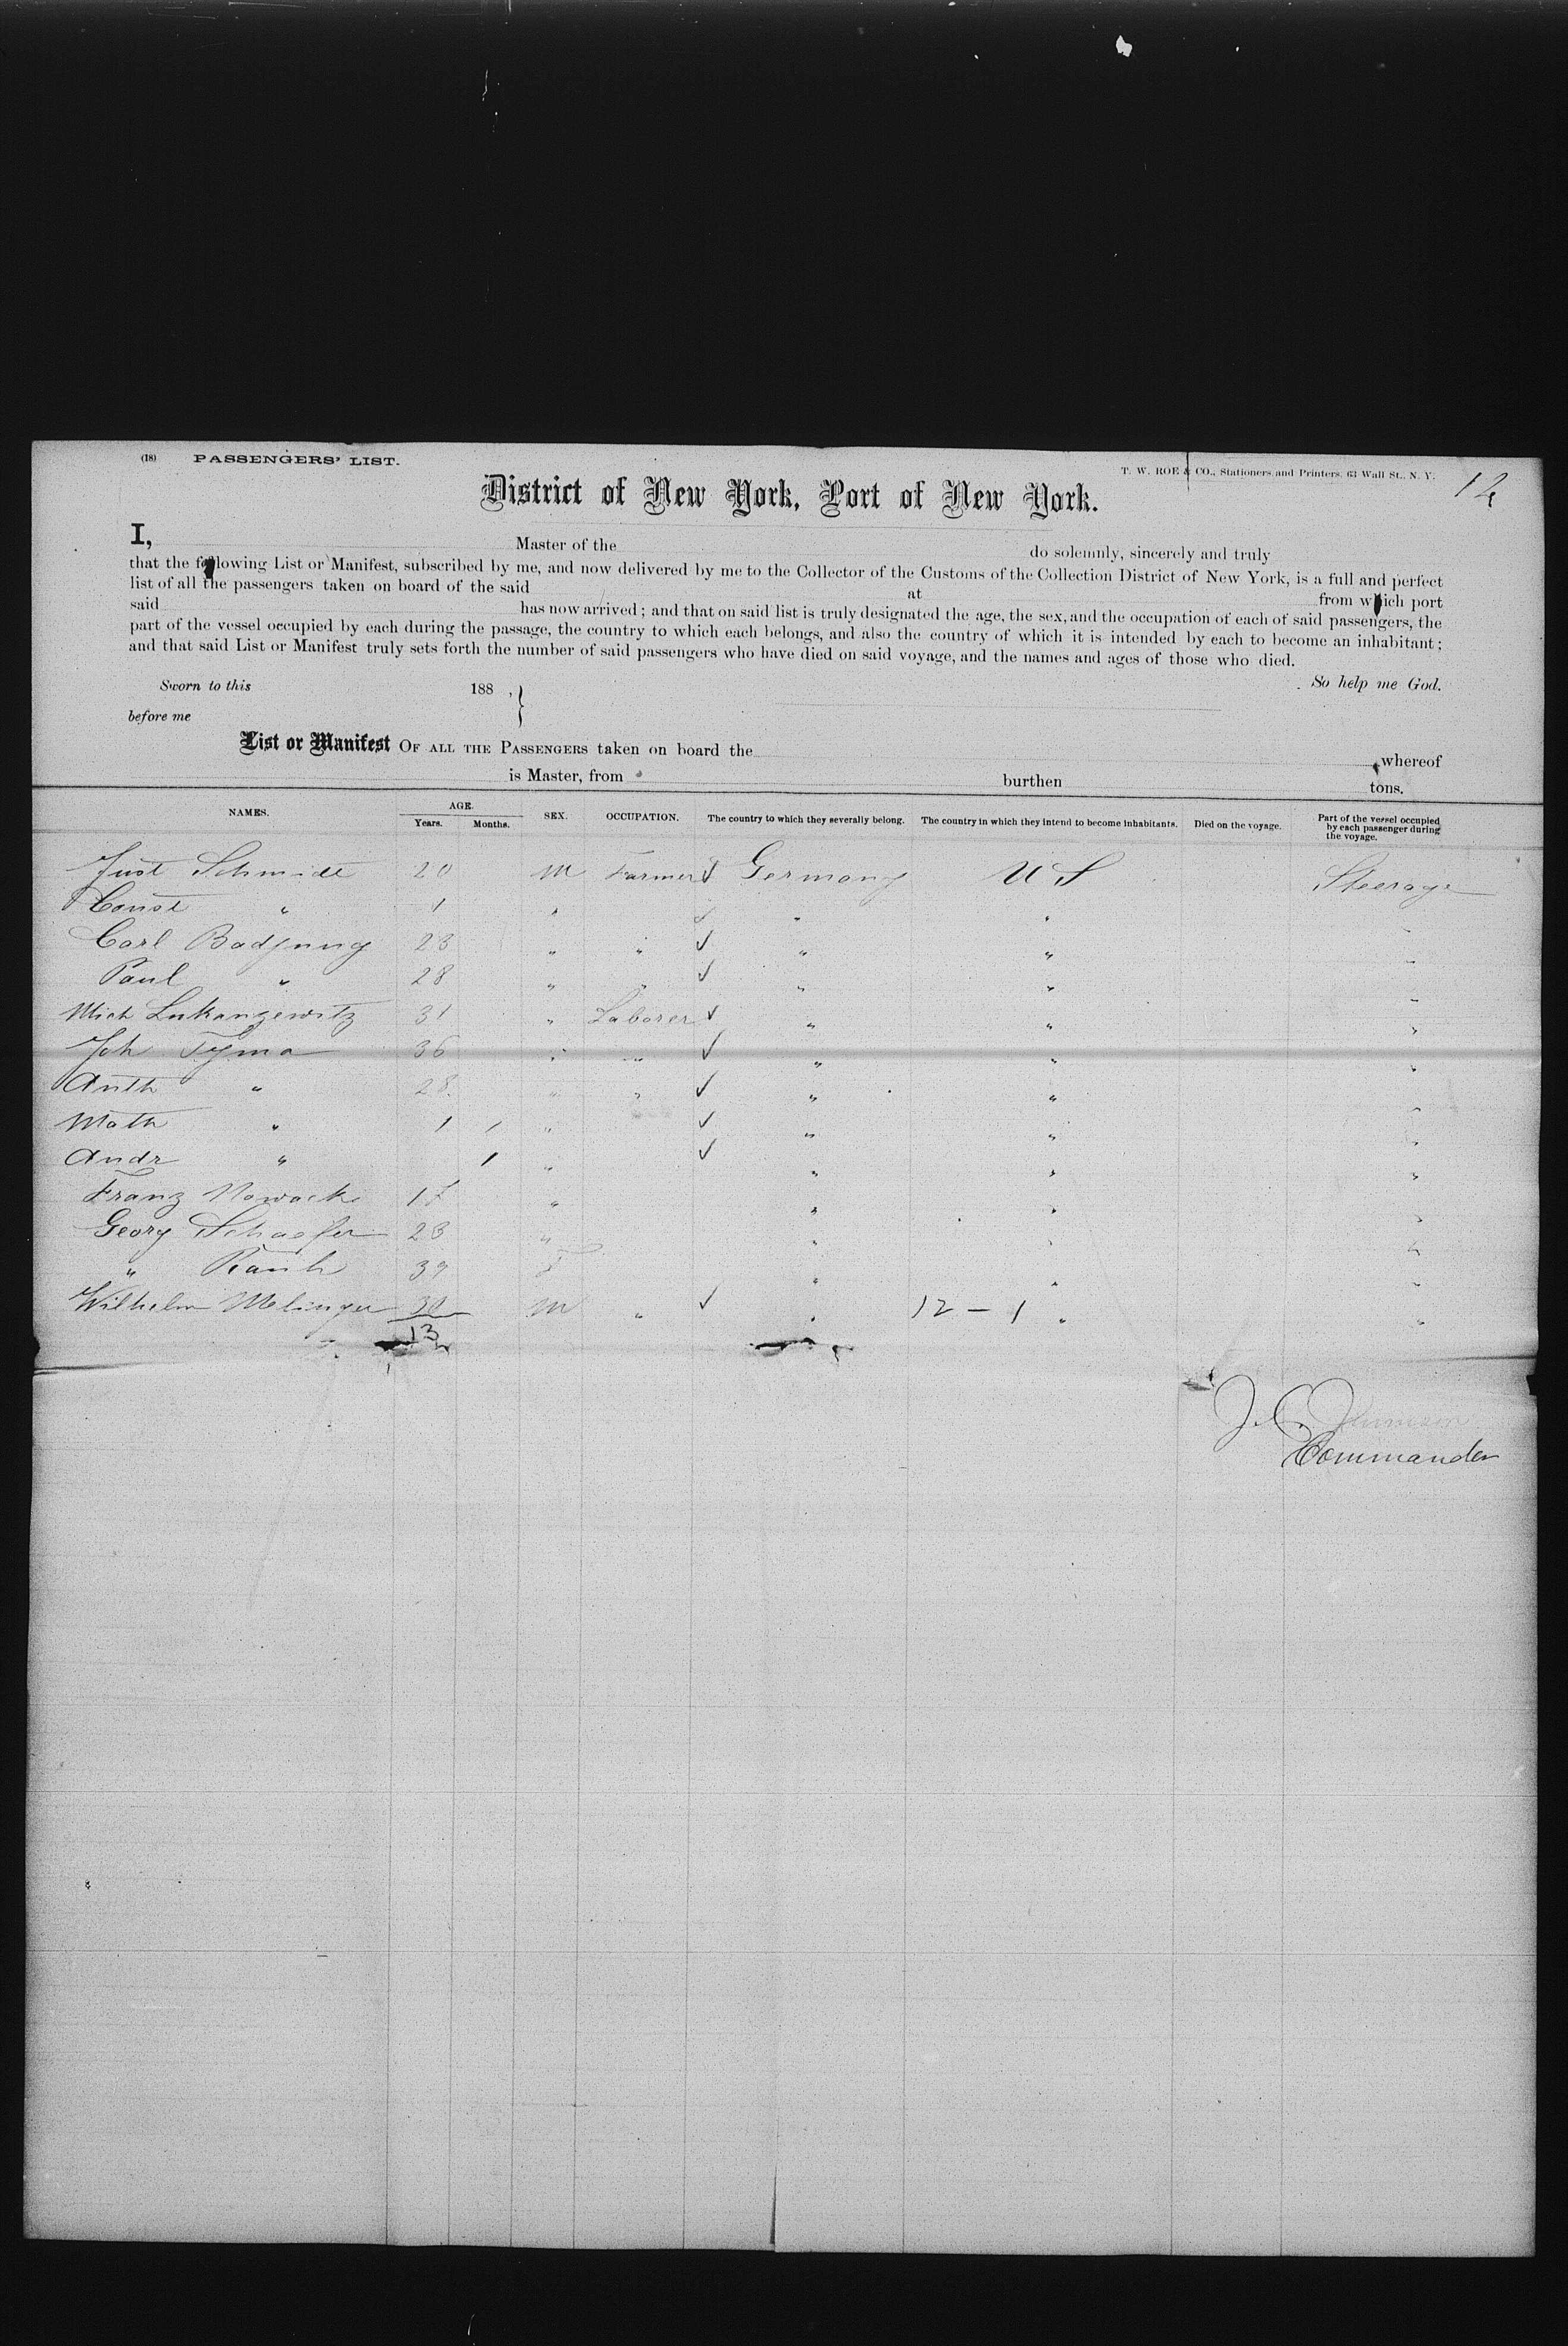 (18) PASSENGERS' LIST.
T. W. ROE & CO., Stationers and Printers, 63 Wall St., N. Y.
12
District of New York, Port of New York.
I, Master of the do solemnly, sincerely and truly
that the following List or Manifest, subscribed by me, and now delivered by me to the Collector of the Customs of the Collection District of New York, is a full and perfect
list of all the passengers taken on board of the said at from which port
said has now arrived; and that on said list is truly designated the age, the sex, and the occupation of each of said passengers, the
part of the vessel occupied by each during the passage, the country to which each belongs, and also the country of which it is intended by each to become an inhabitant;
and that said List or Manifest truly sets forth the number of said passengers who have died on said voyage, and the names and ages of those who died.
Sworn to this 188 , } So help me God.
before me
List or Manifest OF ALL THE PASSENGERS taken on board the whereof
is Master, from burthen tons.
NAMES. AGE. Years. Months. SEX. OCCUPATION. The country to which they severally belong. The country in which they intend to become inhabitants. Died on the voyage. Part of the vessel occupied by each passenger during the voyage.
Just Schmidt 20 M Farmer ✓ Germany U S Steerage
Const " " ✓ " " "
Carl Badjung 23 " " ✓ " " "
Paul " 28 " " ✓ " " "
Mich Lukanzewitz 31 " Laborer ✓ " " "
Joh Tyma 36 " " ✓ " " "
Anth " 28 " " ✓ " " "
Math " 1 1 " ✓ " " "
Andr " 1 " ✓ " " "
Franz Nowack 17 " " " "
Georg Schaefer 23 " " " "
" 39 " " "
Wilhelm 30 M " ✓ " 12 - 1 " "
13
J. C. Jamison
Commander